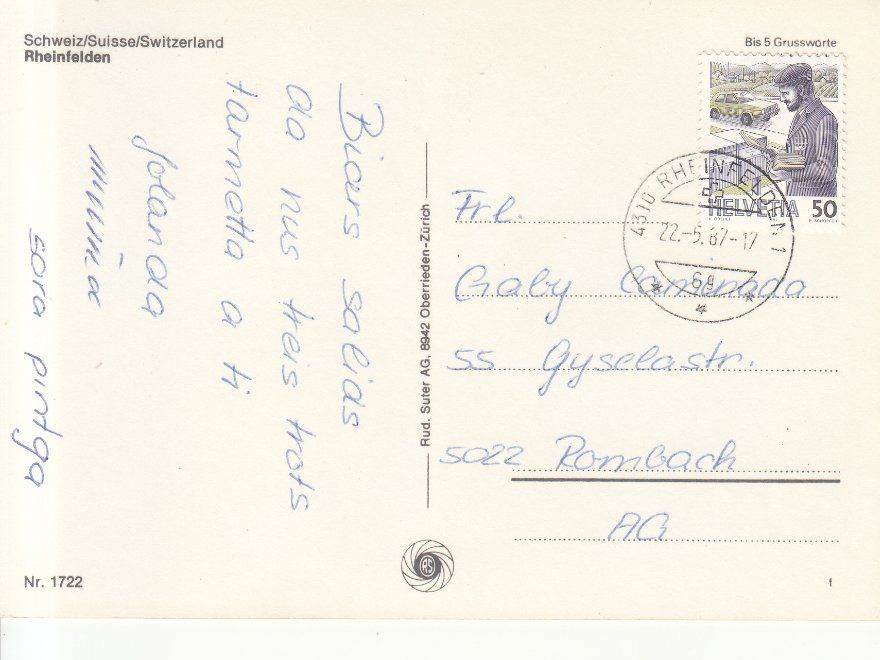 Schweiz/Suisse/Switzerland
Rheinfelden
Bis 5 Grussworte
Biars salids
da nus treis trots
tarmetta a ti
Jolanda
mumma
sora pintga
Rud. Suter AG, 8942 Oberrieden-Zürich
HELVETIA 50
4310 RHEINFELDEN 1
22.-5.87-17
Frl.
Gaby Caminada
55 Gyselastr.
5022 Rombach
AG
RS
Nr. 1722
f